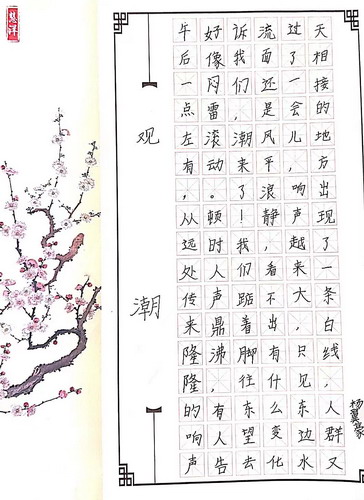 观潮
午后一点左有,从远处传来隆隆的响声
好像闷雷滚动。顿时人声鼎沸,有人告
诉我们,潮来了!我们踮着脚往东望去
流面还是风平浪静,看不出有什么变化
过了一会儿,响声越来越大,只见东边水
天相接的地方出现了一条白线,人群又
杨翼豪